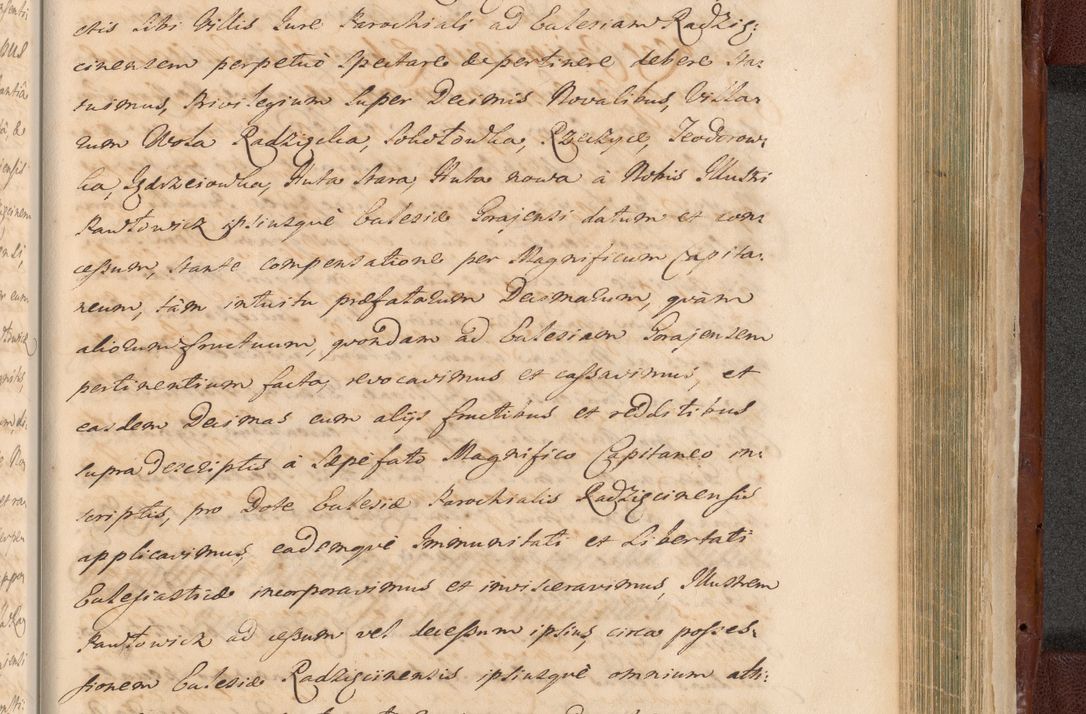 ctis sibi Villis Jure Parochiali ad Eclesiam Radzię:
cinensem perpetuo Spectare de pertinere debere sta:
tuimus, Privilegium super Decimis Novalibus, Villa:
rum Wola Radzięcka, Sokołowka, Rzeczyce, Teodorow:
ka, Jędrzeiowka, Huta Stara, Huta nowa à Nobis Illustri
Pawłowicz ipsiusquè Eclesiæ Gorajensi datum et con:
cessum, stante compensatione per Magnificum Capita:
neum, tàm intuitu præfatarum Decimarum, quàm
aliorum fructuum, quondam ad Eclesiam Gorajensem
pertinentium facta, revocavimus et cassavimus, et
easdem Decimas cum alijs fructibus et redditibus
supra descriptis à sæpefato Magnifico Capitaneo in:
scriptis, pro Dote Eclesiæ Parochialis Radzięcinensis
applicavimus, eademquè Immunitati et Libertati
Eclesiasticæ incorporavimus et invisceravimus, Illustrem
Pawłowicz ad cessum vel decessum ipsius, circa posses:
sionem Eclesiæ Radzięcinensis ipsiusquè omnium atti: